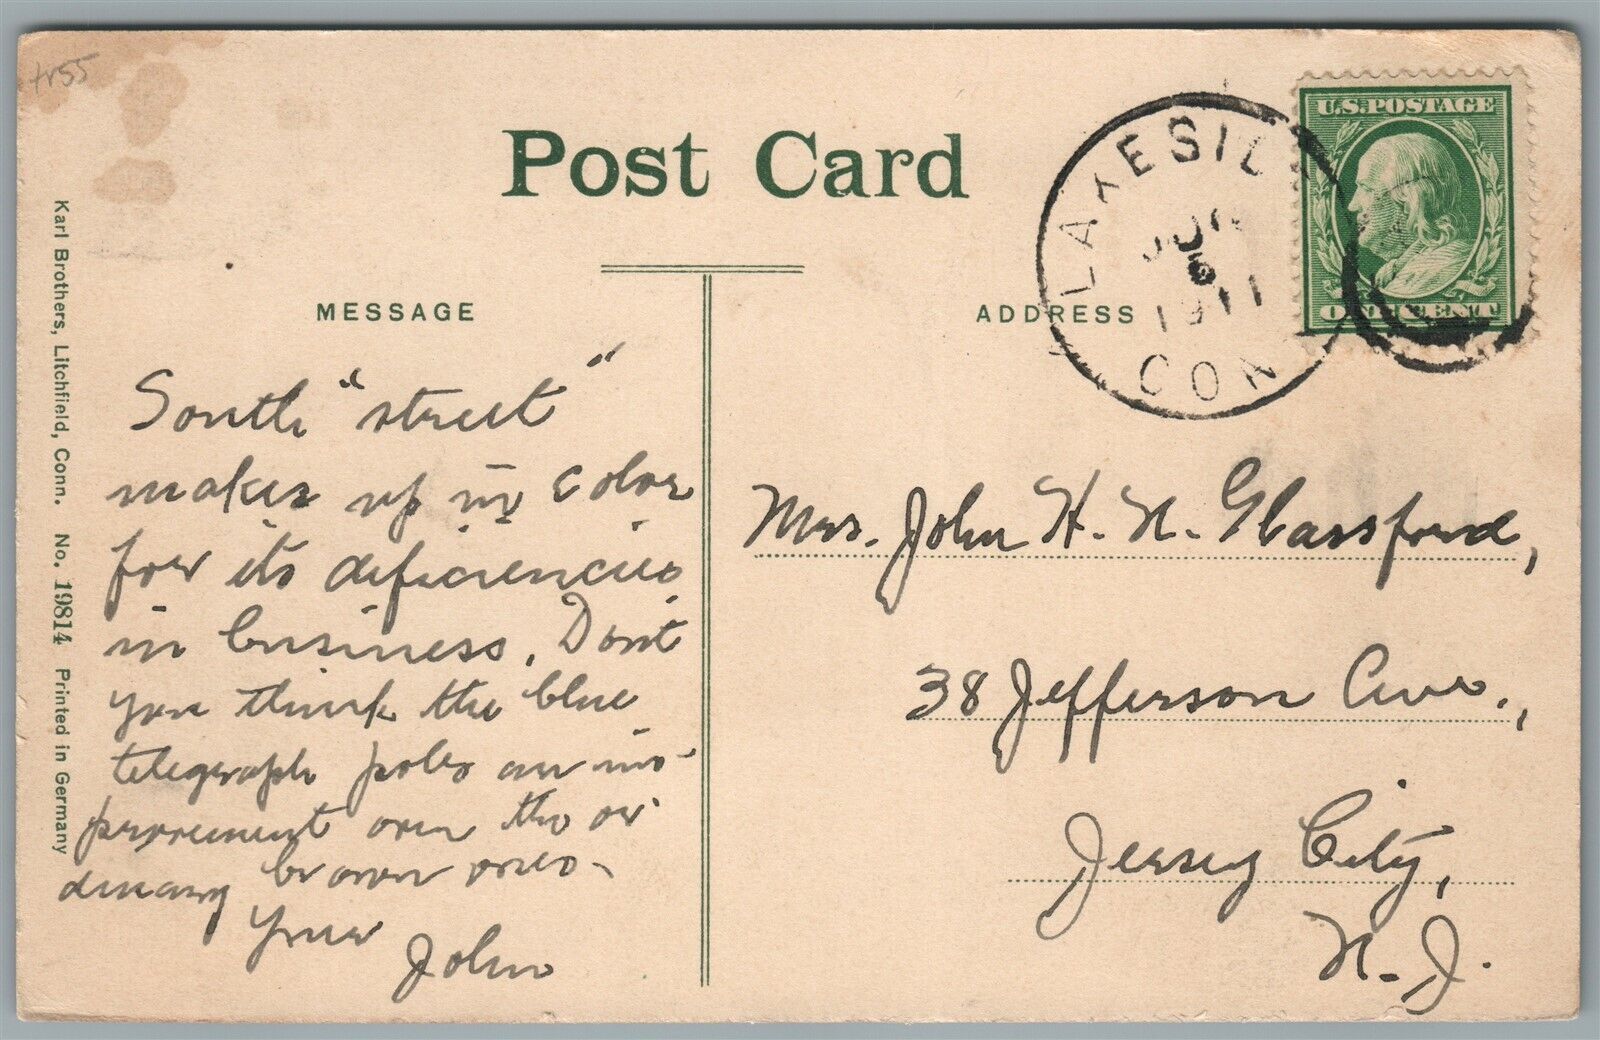 tr55
Post Card
U.S. POSTAGE
ONE CENT
LAKESIDE
6
1911
CONN
MESSAGE
ADDRESS
South "street"
makes up in color
for its deficiencies
in business. Don't
you think the blue
telegraph poles an im-
provement over the or
dinary brown ones.
Your John
Mrs. John H. N. Glassford,
38 Jefferson Ave.,
Jersey City,
N. J.
Karl Brothers, Litchfield, Conn. No. 19814 Printed in Germany